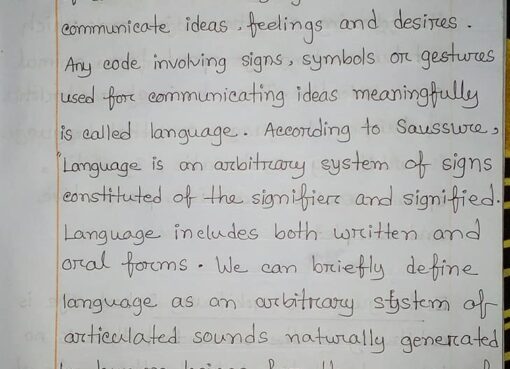 communicate ideas, feelings and desires.
Any code involving signs, symbols or gestures
used for communicating ideas meaningfully
is called language. According to Saussure,
"Language is an arbitrary system of signs
constituted of the signifier and signified.
Language includes both written and
oral forms. We can briefly define
language as an arbitrary system of
articulated sounds naturally generated